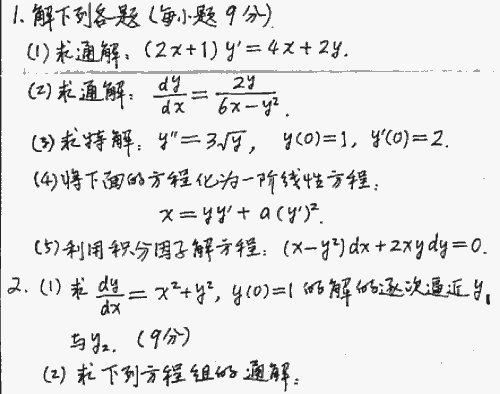 1. 解下列各题 (每小题 9 分)
(1) 求通解: (2x+1) y' = 4x + 2y.
(2) 求通解: dy/dx = 2y/(6x-y²).
(3) 求特解: y'' = 3√y, y(0)=1, y'(0)=2.
(4) 将下面的方程化为一阶线性方程:
x = yy' + a(y')².
(5) 利用积分因子解方程: (x-y²)dx + 2xydy = 0.
2. (1) 求 dy/dx = x²+y², y(0)=1 的解的逐次逼近 y₁
与 y₂. (9分)
(2) 求下列方程组的通解: